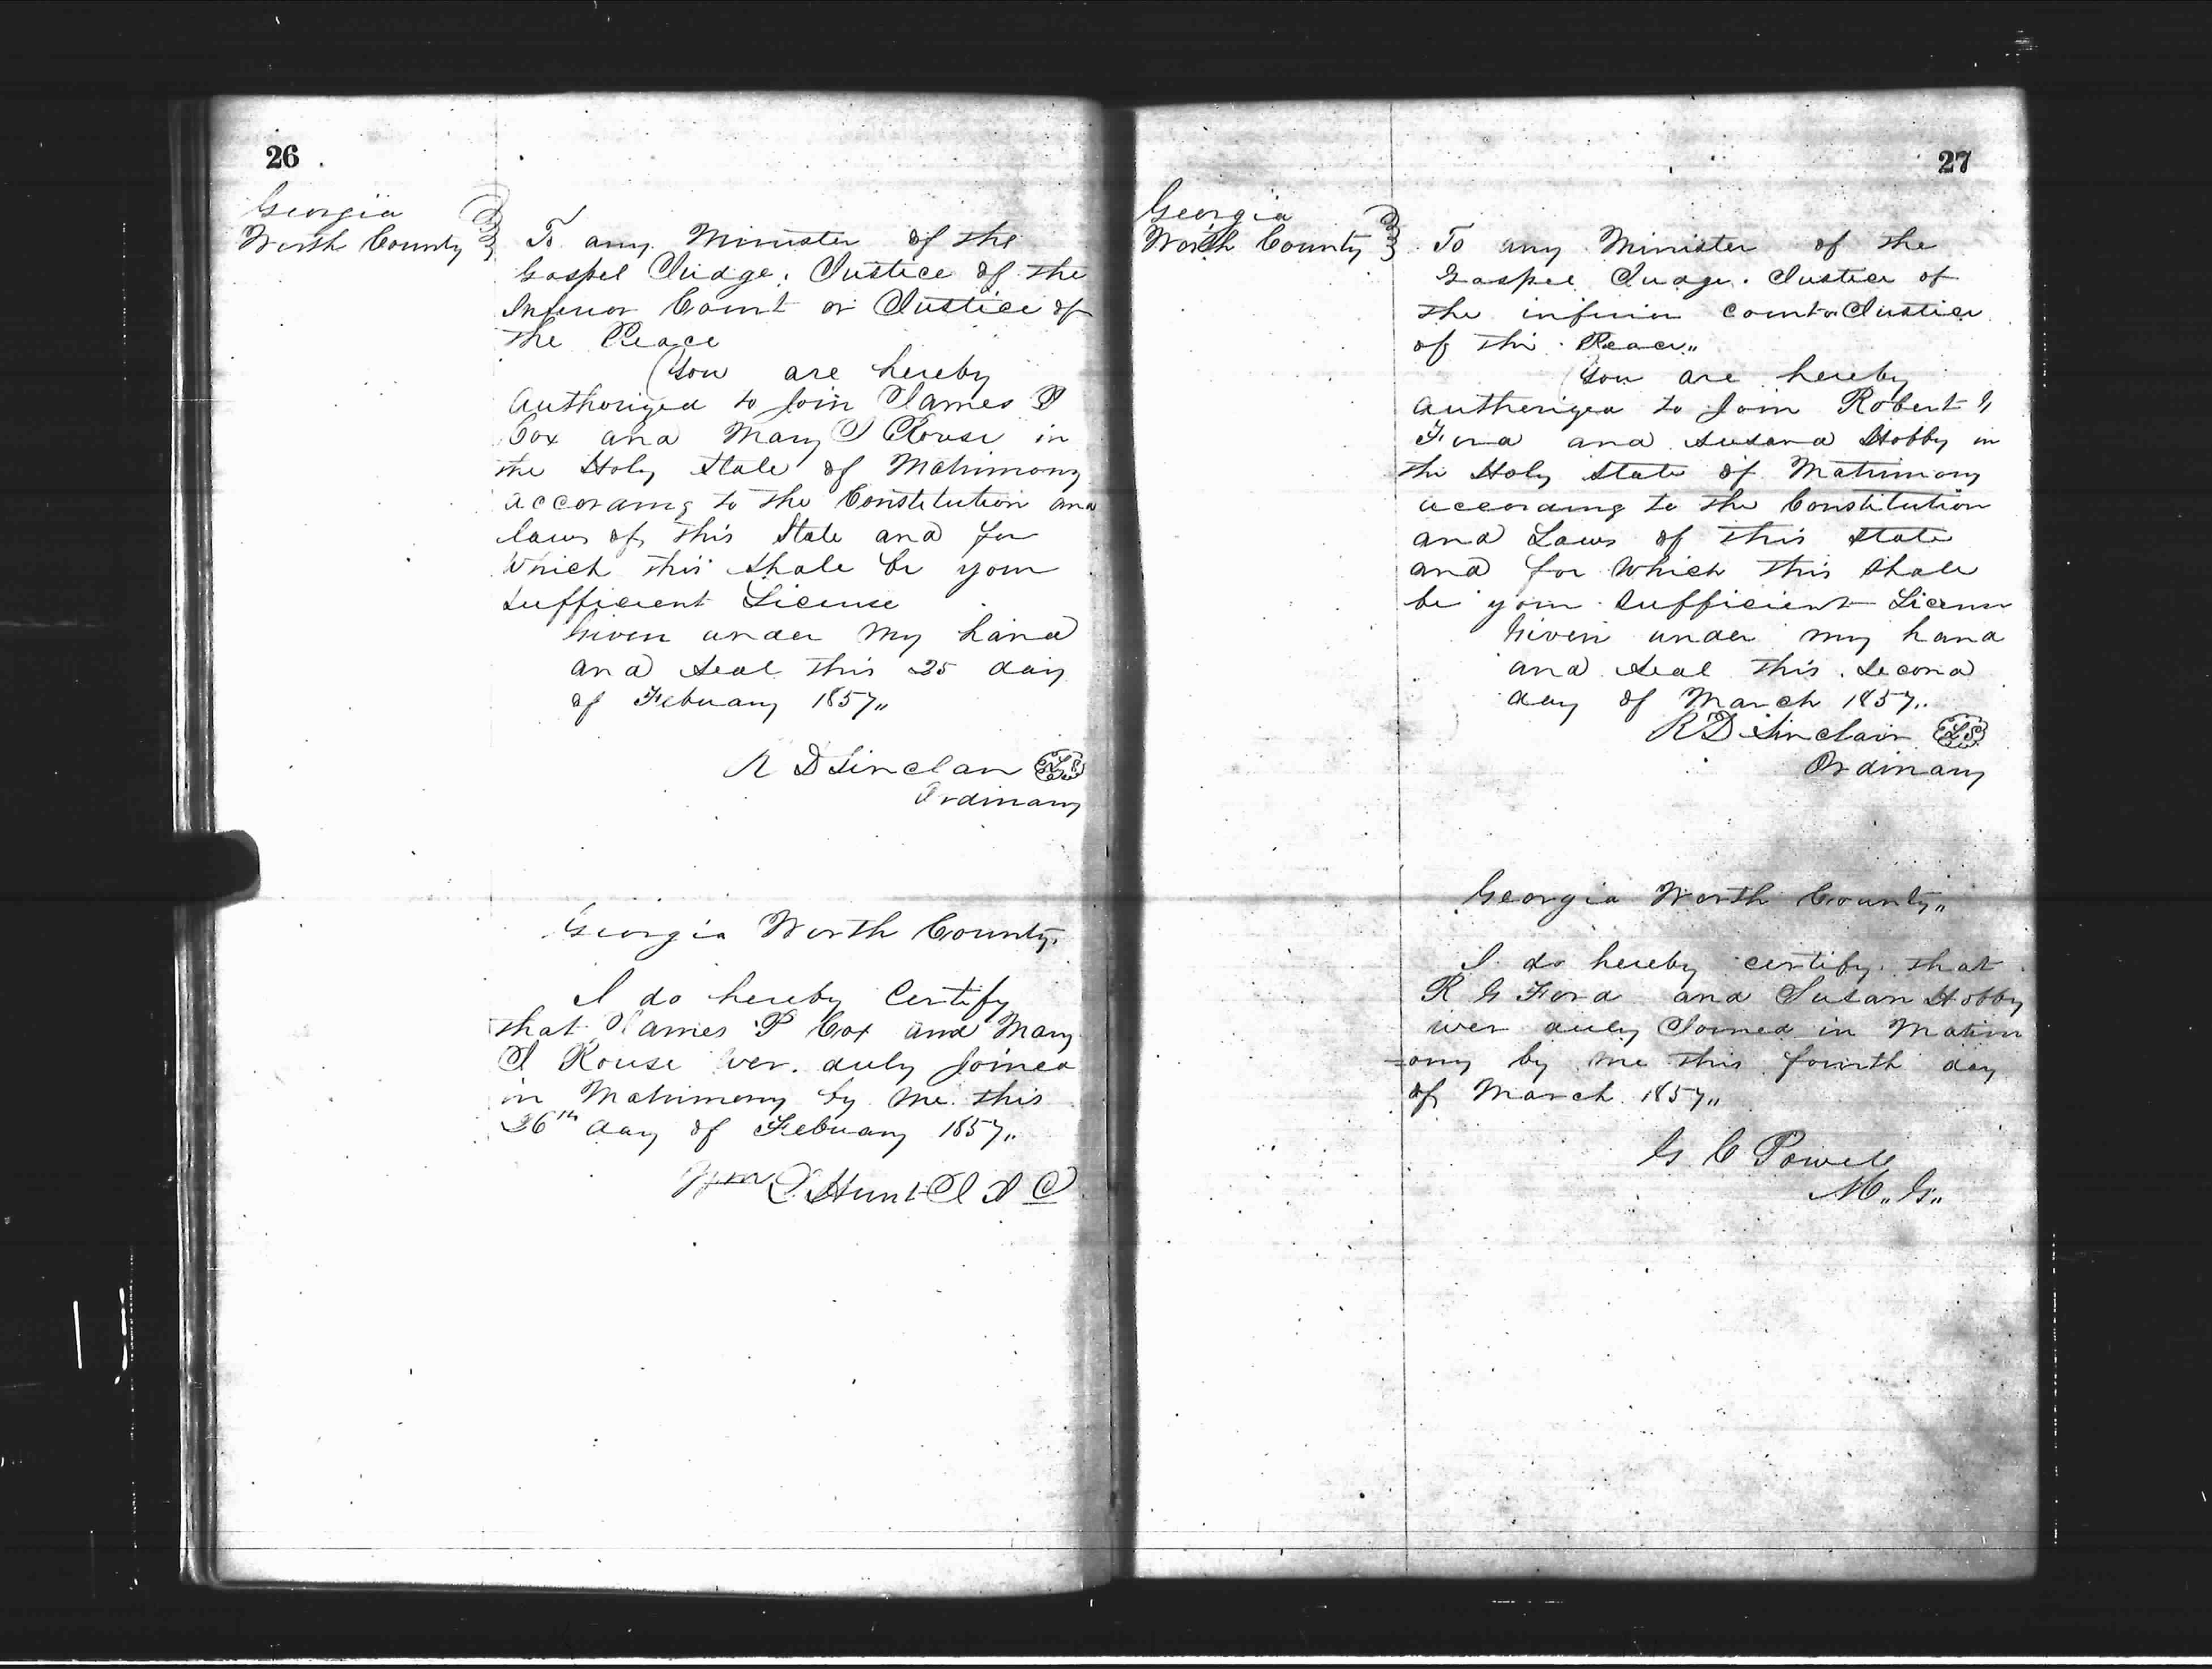 26
Georgia
Worth County
To any Minister of the
Gospel Judge, Justice of the
Inferior Court or Justice of
the Peace
You are hereby
Authorized to Join James P
Cox and Mary J Rouse in
the Holy State of Matrimony
according to the Constitution and
laws of this State and for
Which this shale be your
sufficient License
Given under my hand
and seal this 25 day
of Febuary 1857,,
R D Sinclair LS
Ordinary
Georgia Worth County.
I do hereby Certify
that James P Cox and Mary
J Rouse wer. duly Joined
in Matrimony by me this
26th day of Febuary 1857,,
Wm Hunt J I C
27
Georgia
Worth County
To any Minister of the
Gospel Judge. Justice of
the inferior court or Justice
of the Peace,,
You are hereby
Authorized to Join Robert G
Ford and Susana Hobby in
the Holy State of Matrimony
according to the Constitution
and Laws of this State
and for Which this Shale
be your Sufficient License
Given under my hand
and seal this second
day of March 1857,,
R D Sinclair LS
Ordinary
Georgia Worth County,,
I do hereby certify that
R G Ford and Susan Hobby
wer duly Joined in Matrim
=ony by me this fourth day
of March 1857,,
G C Powell
M,, G,,